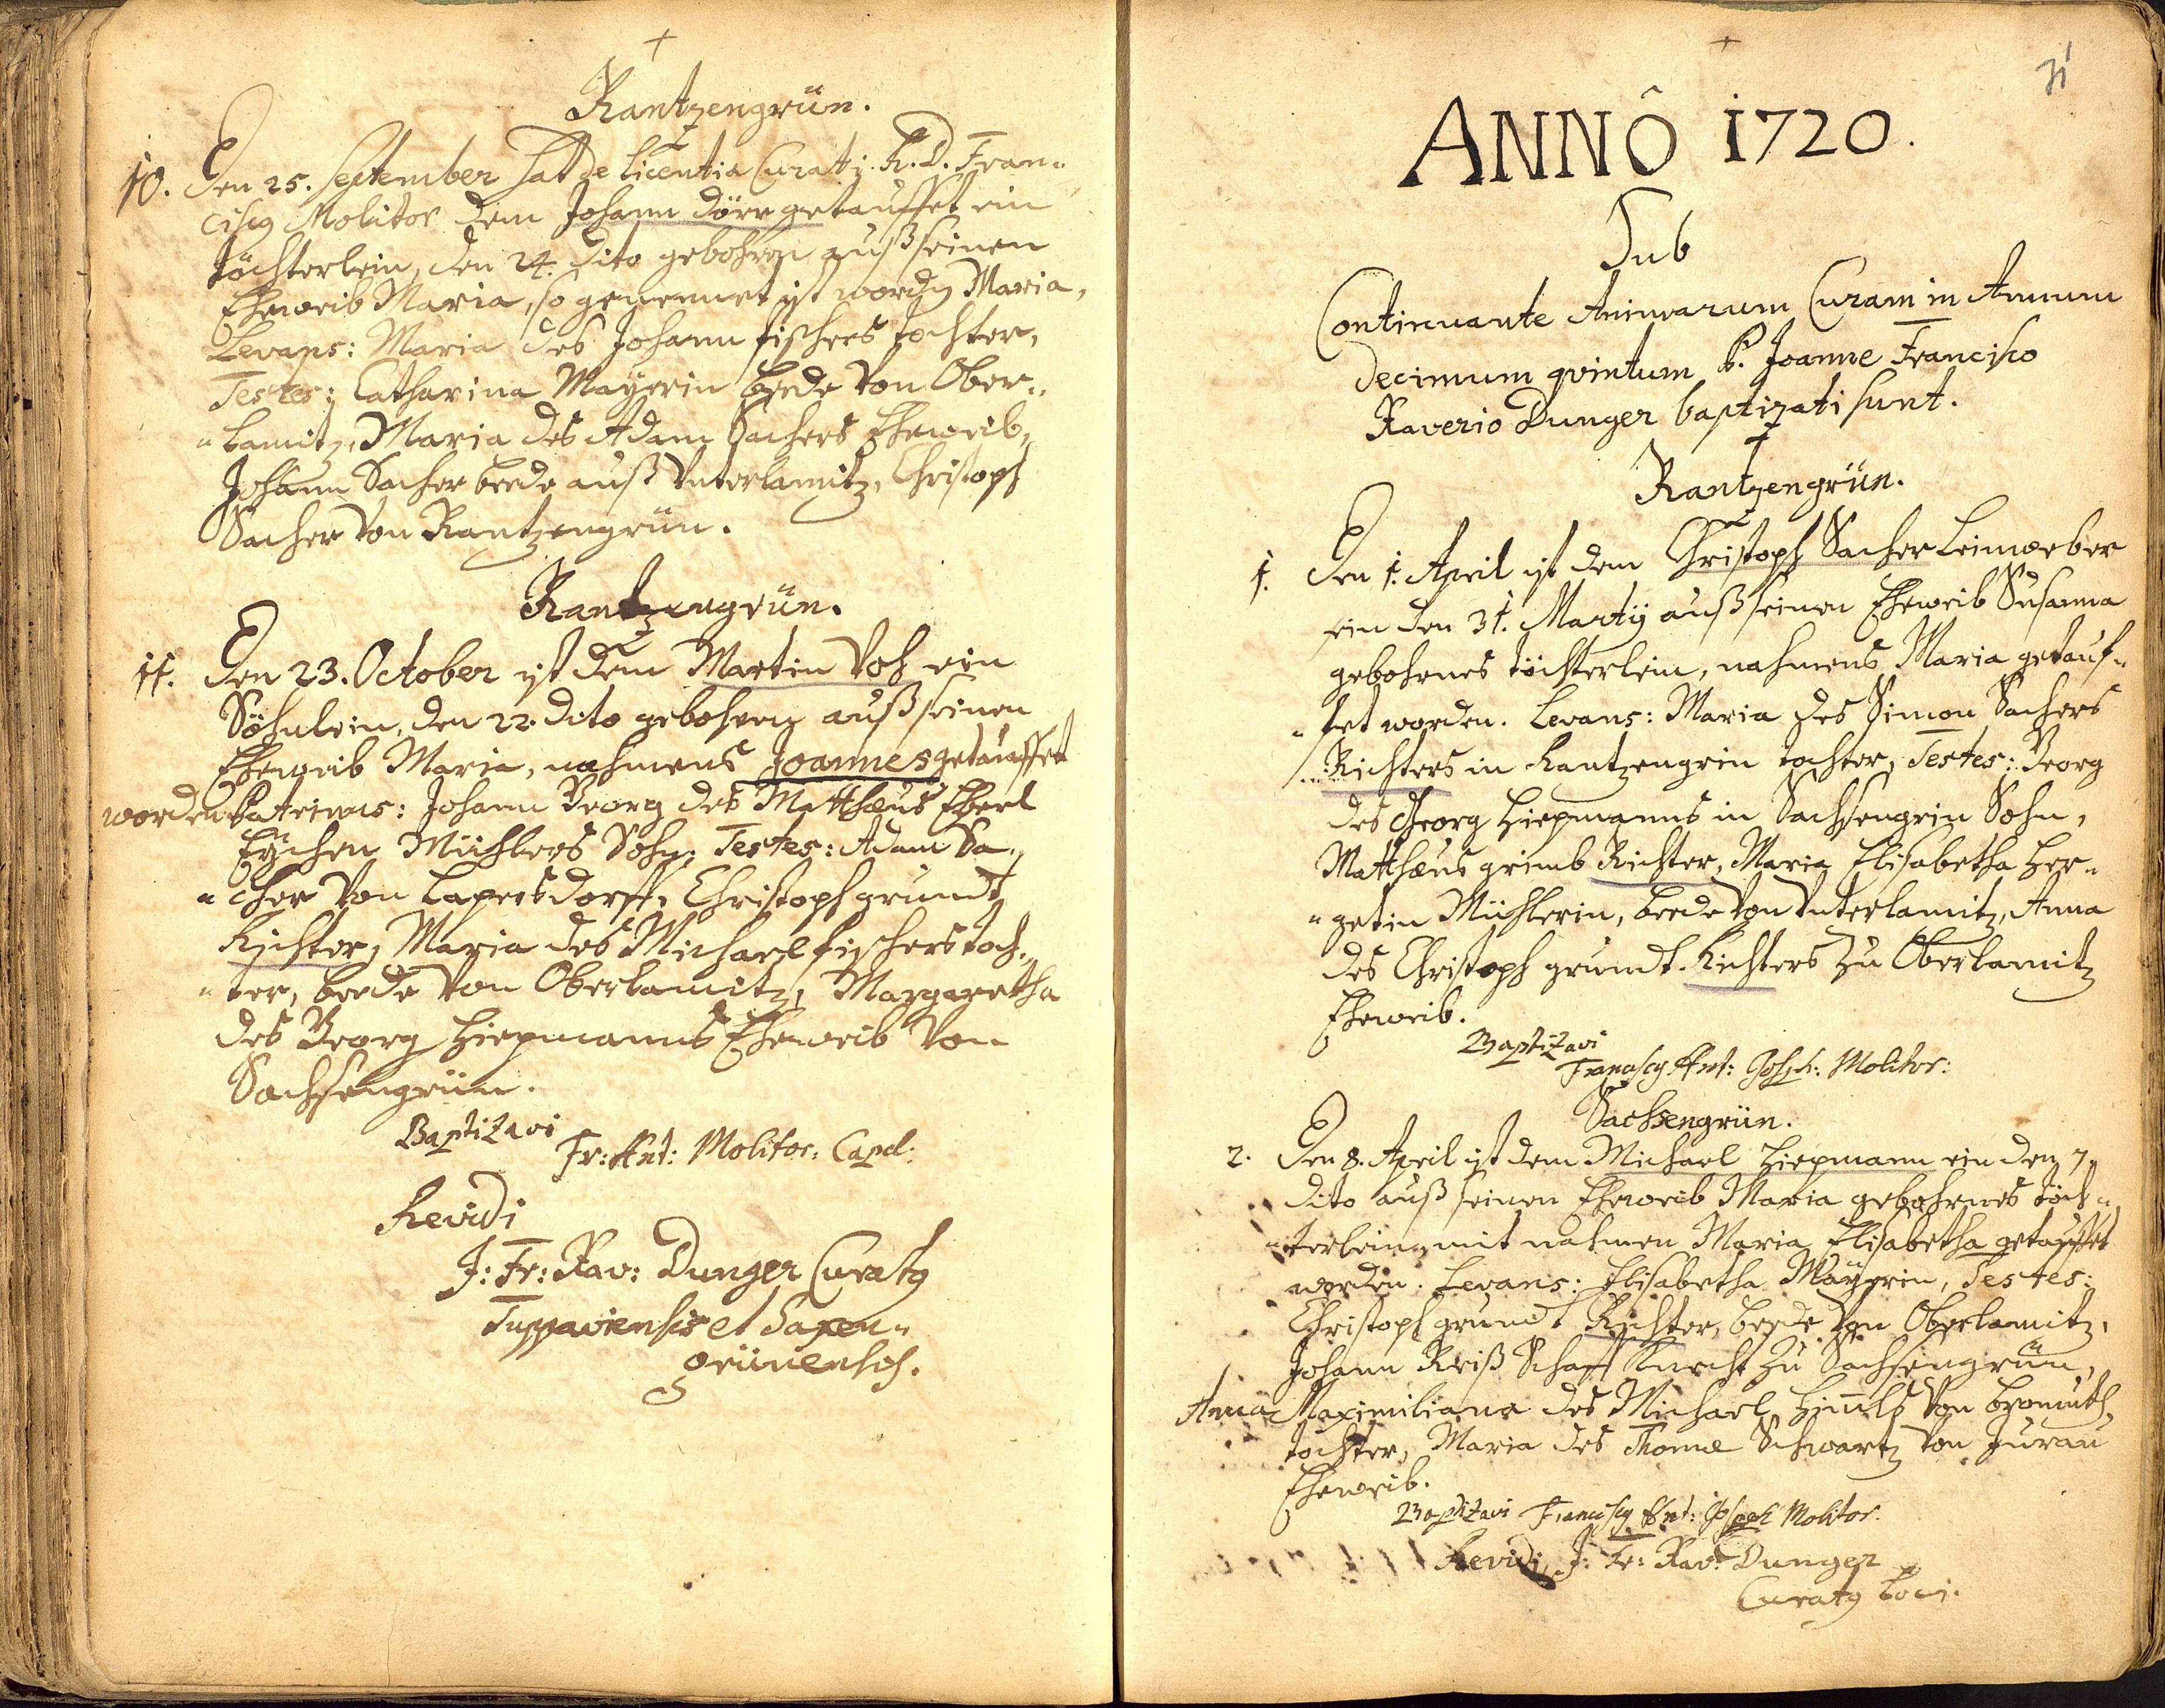 Rantzengrün.
10. Den 25. September hat de licentia Curati R. D. Fran=
ciscq Molitor dem Johann Dörr getauffet ein
töchterlein, den 24. dito gebohren auß seinen
Eheweib Maria, so genennet ist wordn Maria,
Levans: Maria des Johann fischers tochter,
Testes: Catharina Mayerin beede Von Ober=
=lamitz, Maria des Adam Sachers Eheweib,
Johann Sacher beede auß Unterlamitz, Christoph
Sacher Von Rantzengrün.
Rantzengrün.
11. Den 23. October ist dem Martin Voh ein
Söhnlein, den 22. dito gebohren auß seinen
Eheweib Maria, nahmens Joannes getauffet
worden Patrinus: Johann Georg des Matthæus Eberl
Mühlers Sohn, Testes: Adam Sa=
=cher Von Lapersdorff, Christoph grundt
Richter, Maria des Michael fischers toch=
=ter, beede Von Oberlamitz, Margaretha
des Georg Hiepmanns Eheweib Von
Sachsengrün.
Baptizavi
Fr: Ant: Molitor: Capel:
Revidi
J: Fr: Xav: Dunger Curatq
Tuppaviensis et Saxen=
grünensis.
31
ANNÔ 1720.
Sub
Continuante Animarum Curam in Annum
decimum qvintum P. Joanne Francisco
Xaverio Dunger baptizati sunt.
Rantzengrün.
1. Den 1. April ist dem Christoph Sacher Leinweber
ein den 31. Martij auß seinen Eheweib Susanna
gebohrnes töchterlein, nahmens Maria getauf=
=fet worden. Levans: Maria des Simon Sachers
Richters in Rantzengrün tochter, Testes: Georg
des Georg Hiepmanns in Sachsengrün Sohn,
Matthæus grimb Richter, Maria Elisabetha Her=
=getin Mühlerin, beede Von Unterlamitz, Anna
des Christoph grundt Richters zu Oberlamitz
Eheweib.
Baptizavi
Franciscq Ant: Joseph: Molitor:
Sachsengrün.
2. Den 8. April ist dem Michael Hiepmann ein den 7.
dito auß seinen Eheweib Maria gebohrnes töch=
=terlein mit nahmen Maria Elisabetha getauffet
worden. Levans: Elisabetha Mayerin, Testes:
Christoph grundt Richter, beede Von Oberlamitz,
Johann Reiß Schaff Knecht zu Sachsengrün,
Anna Maximiliana des Michael Von
tochter, Maria des Thomæ Schwartz Von Jurau
Eheweib.
Baptizavi Franciscq Ant: Joseph Molitor.
Revidi J: Fr: Xav: Dunger
Curatq Loci.